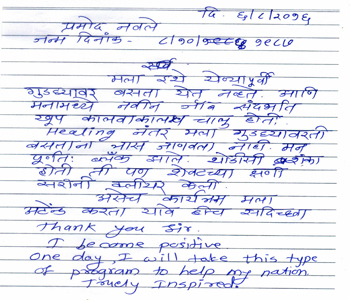 दि. ६/८/२०१६
प्रमोद नवले
जन्म दिनांक - ८/१०/१९८५
सर,
मला इथे येण्यापूर्वी
गुडघ्यावर बसता येत नव्हतं. आणि
मनामध्ये नवीन जॉब संदर्भात
खूप कालवाकालव चालु होती.
Healing नंतर मला गुडघ्यावरती
बसताना त्रास जाणवला नाही. मन
पूर्णतः ब्लँक झालं. थोडीशी शंका
होती ती पण शेवटच्या क्षणी
सरांनी क्लीयर केली.
असेच कार्यक्रम मला
अटेंड करता यावे हीच सदिच्छा
Thank you Sir.
I become positive.
One day, I will take this type
of program to help my nation.
Truely Inspired.